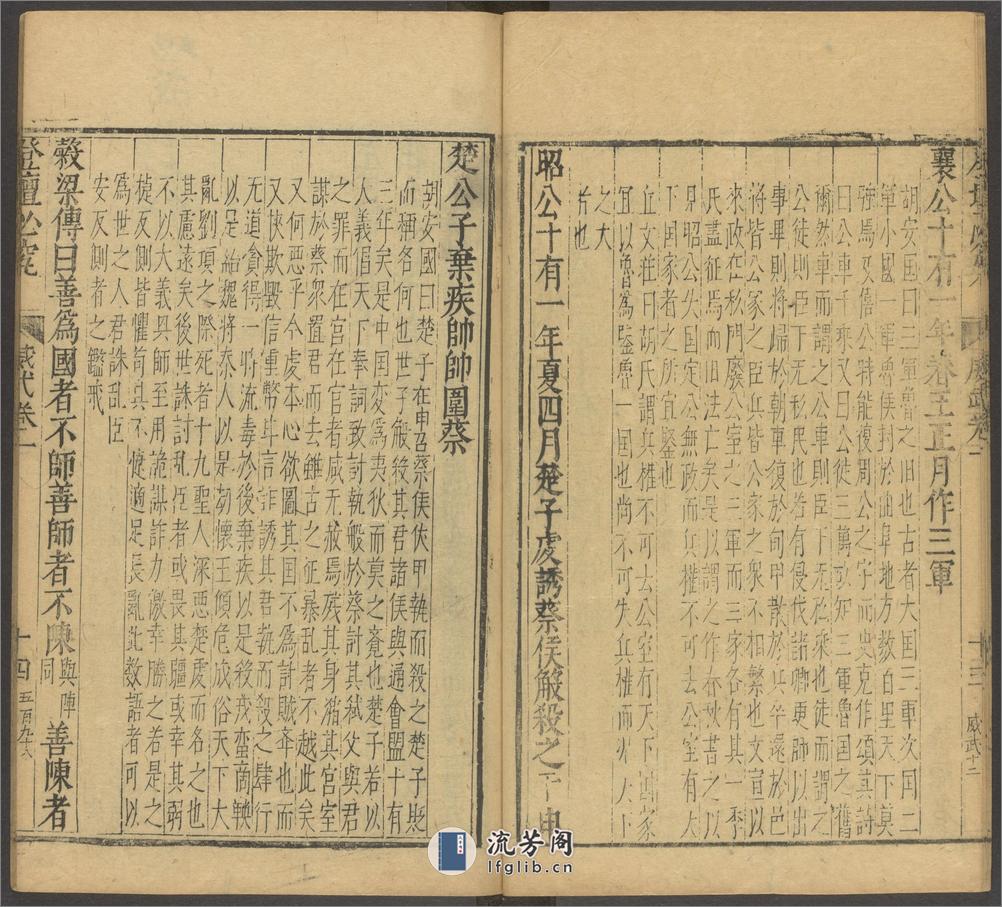 襄公十有一年春王正月作三軍
胡安国曰三軍魯之旧也古者大国三軍次国二
軍小國一軍魯侯封於曲阜地方数百里天下莫
強焉及僖公時能復周公之宇而史克作頌其詩
曰公車千乘又曰公徒三萬故知三軍魯国之舊
爾然車而謂之公車則臣下无私乘也徒而謂之
公徒則臣下无私民也若有侵伐諸卿更帥以出
事畢則將歸於朝車復於甸甲散於丘卒還於邑
將皆公家之臣兵皆公家之眾不相繁也文宣以
來政在私門襄公幼弱季氏廢公室之三軍而三家各有其一季
氏盡征焉而旧法亡矣是以謂之作春秋書之以
見昭公失国定公无政而兵權不可去公室有天
下国家者之所宜鑒也
丘文莊曰胡氏謂兵權不可去公室有天下国家
宜以魯爲鑒魯一国也尚不可失兵權而況天下
之大
者也
昭公十有一年夏四月楚子虔誘蔡侯般殺之于申
楚公子棄疾帥師圍蔡
胡安國曰楚子在申召蔡侯伏甲執而殺之楚子貶
而稱名何也世子般弑其君諸侯與通會盟十有
三年矣是中国変爲夷狄而莫之覺也楚子若以
人義倡天下奉詞致討執般於蔡討其弑父與君
之罪而在宮在官者咸无赦焉残其身豬其宮室
謀於蔡眾置君而去雖古之征暴乱者不越此矣
又何悪乎今虔本心欲圖其国不爲討賊奉也而
无道貪得一時挾欺毀信重幣甘言詐誘其君執而殺之肆行
以是始魏將秦人以是劫懷王傾危成俗天下大
亂劉項之際死者十九聖人深悪楚虔而名之也
其慮遠矣後世誅討乱臣者或畏其彊或幸其弱
不以大義興師至用詭謀詐力徼幸勝之若是之
捷反側皆懼苟其不悛適足長亂此数語者可以
爲世之人君誅乱臣
安反側者之鑑戒
穀梁傳曰善爲國者不師善師者不陳與陣同善陳者
登壇必究
威武卷一
十四
五百九六
十三
威武十二
流芳阁
lfglib.cn